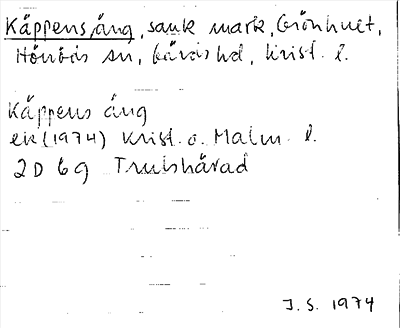 Käppens äng, sank mark, Grönhult,
Hönrös sn, Gärds hd, Krist. l.
Käppens äng
ek (1974) Krist. o. Malm. l.
2D 6g Trulshärad
J. S. 1974